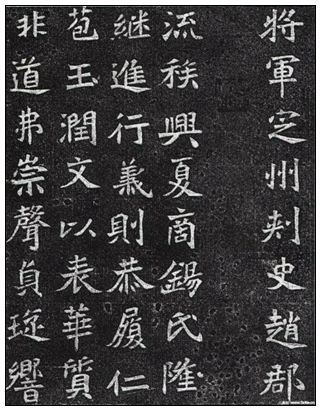 將軍定州刾史趙郡
流興夏商錫氏隆
継進行義則恭履仁
苞玉潤文以表華質
非道弗崇聲貞琁響